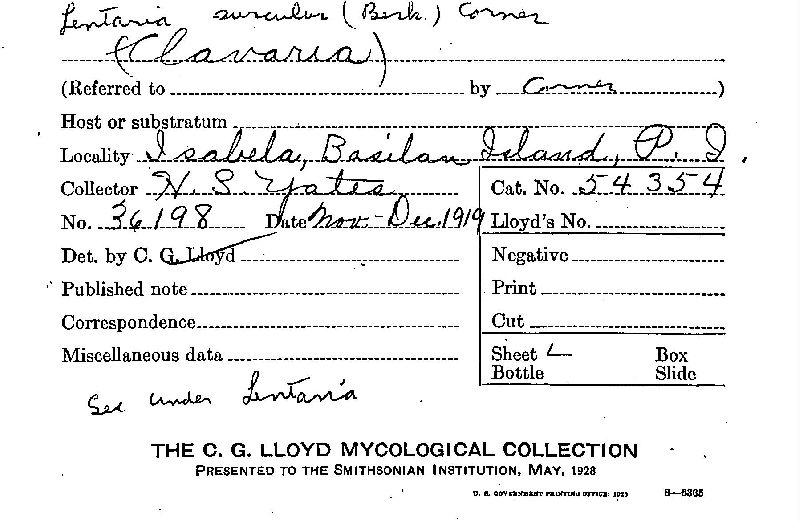 Lentaria surculus (Berk.) Corner
(Clavaria)
(Referred to by Corner)
Host or substratum
Locality Isabela, Basilan Island, P. I.
Collector H. S. Yates Cat. No. 54354
No. 36198 Date Nov.-Dec. 1919 Lloyd's No.
Det. by C. G. Lloyd Negative
Published note Print
Correspondence Cut
Miscellaneous data Sheet Box
Bottle Slide
See under Lentaria
THE C. G. LLOYD MYCOLOGICAL COLLECTION
PRESENTED TO THE SMITHSONIAN INSTITUTION, MAY, 1928
U. S. GOVERNMENT PRINTING OFFICE: 1929 8—5365